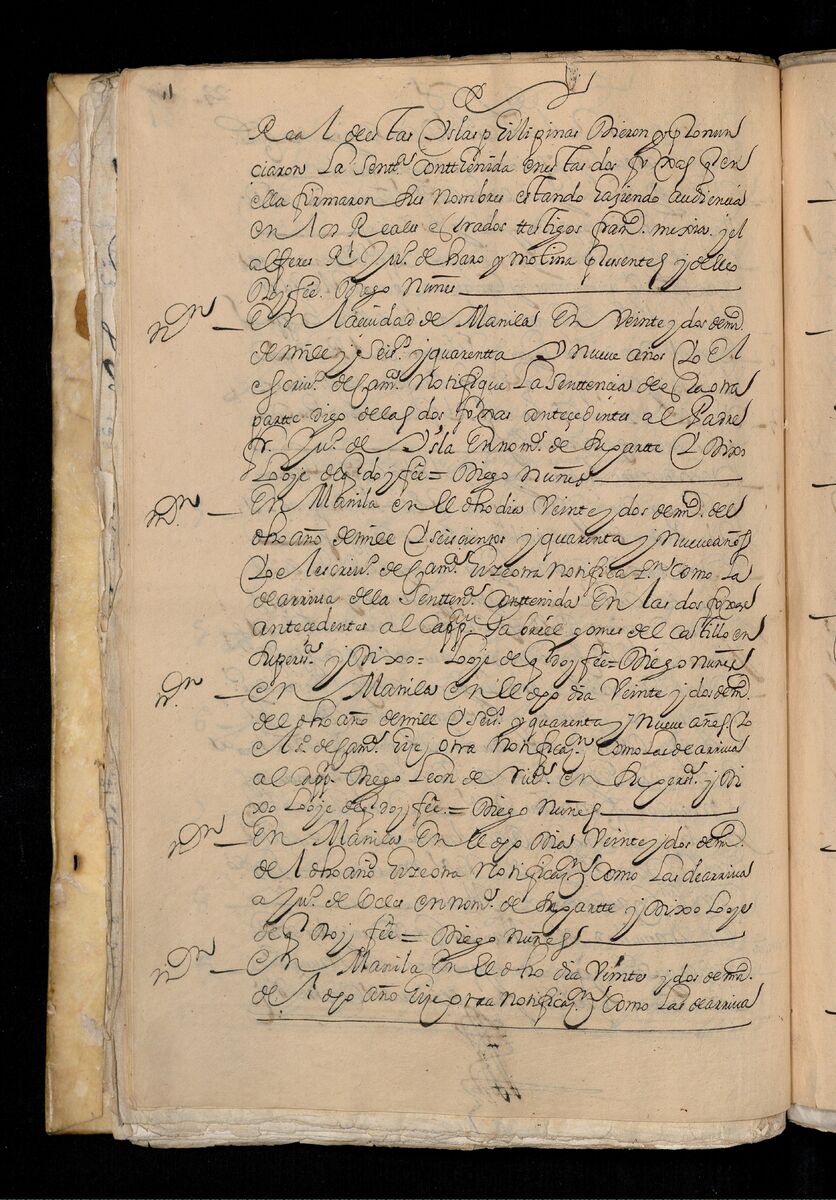 Real de estas Yslas philipinas Dieron y pronun
ciaron La sentta. Conttenida en estas dos foxas y en
ella firmaron sus nombres estando haziendo audiencia
en los Reales estrados ttestigos frando. mexia. y el
alferes Rl Juo. de haro y molina pressentes y de ello
Doy fee. Diego Nuñes
En La ciudad de Manila En Veinte y dos de
de mill y seisos. y quarentta y Nueve años Yo El
Escrivo. de Camra. Notifique La Senttencia de esta otra
partte digo de las dos foxas antecedentes al Padre
fr. Juo. de Ysla En nome. de su partte Y Dixo
Lo oye de q. doy fee = Diego Nuñes
En Manila en el dho dia Veinte y dos de del
dho año de mill Y seiscientos y quarenta y Nueve años
Yo el escrivo. de Camra. hize otra Notificaon. Como La
de arriva de la Senttena. Conttenida En las dos foxas
antecedentes al Cappn. Gabriel gomes del Castillo en
su persa. y Dixo = Lo oye de q. doy fee = Diego Nuñes
En Manila en el dho dia Veinte y dos de
del dho año de mill Y seisos. y quarenta y Nueve años Yo
el de Camra. hize otra Notificaon. Como Las de arriva
al Cappn. Diego Leon de en su persa. y Di
xo Lo oye de q. doy fee. = Diego Nuñes
En Manila En el dho Dia Veinte y dos de
del dho año hize otra Notificaon. Como Las de arriva
a Juo. de en nome. de su partte y Dixo Lo oye
de q. Doy fee = Diego Nuñes
En Manila En el dho dia Veinte y dos de
del dho año hize otra Notificaon. Como Las de arriva